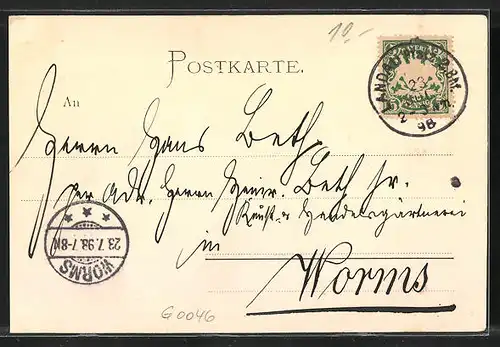 10.-
POSTKARTE.
LANDAU
23
98
An
Herrn Hans Beth
per Adr. Herrn Heinr. Beth sr.
Kunst- & Handelsgärtnerei
in
Worms
WORMS
23.7.98.7-8N.
G0046